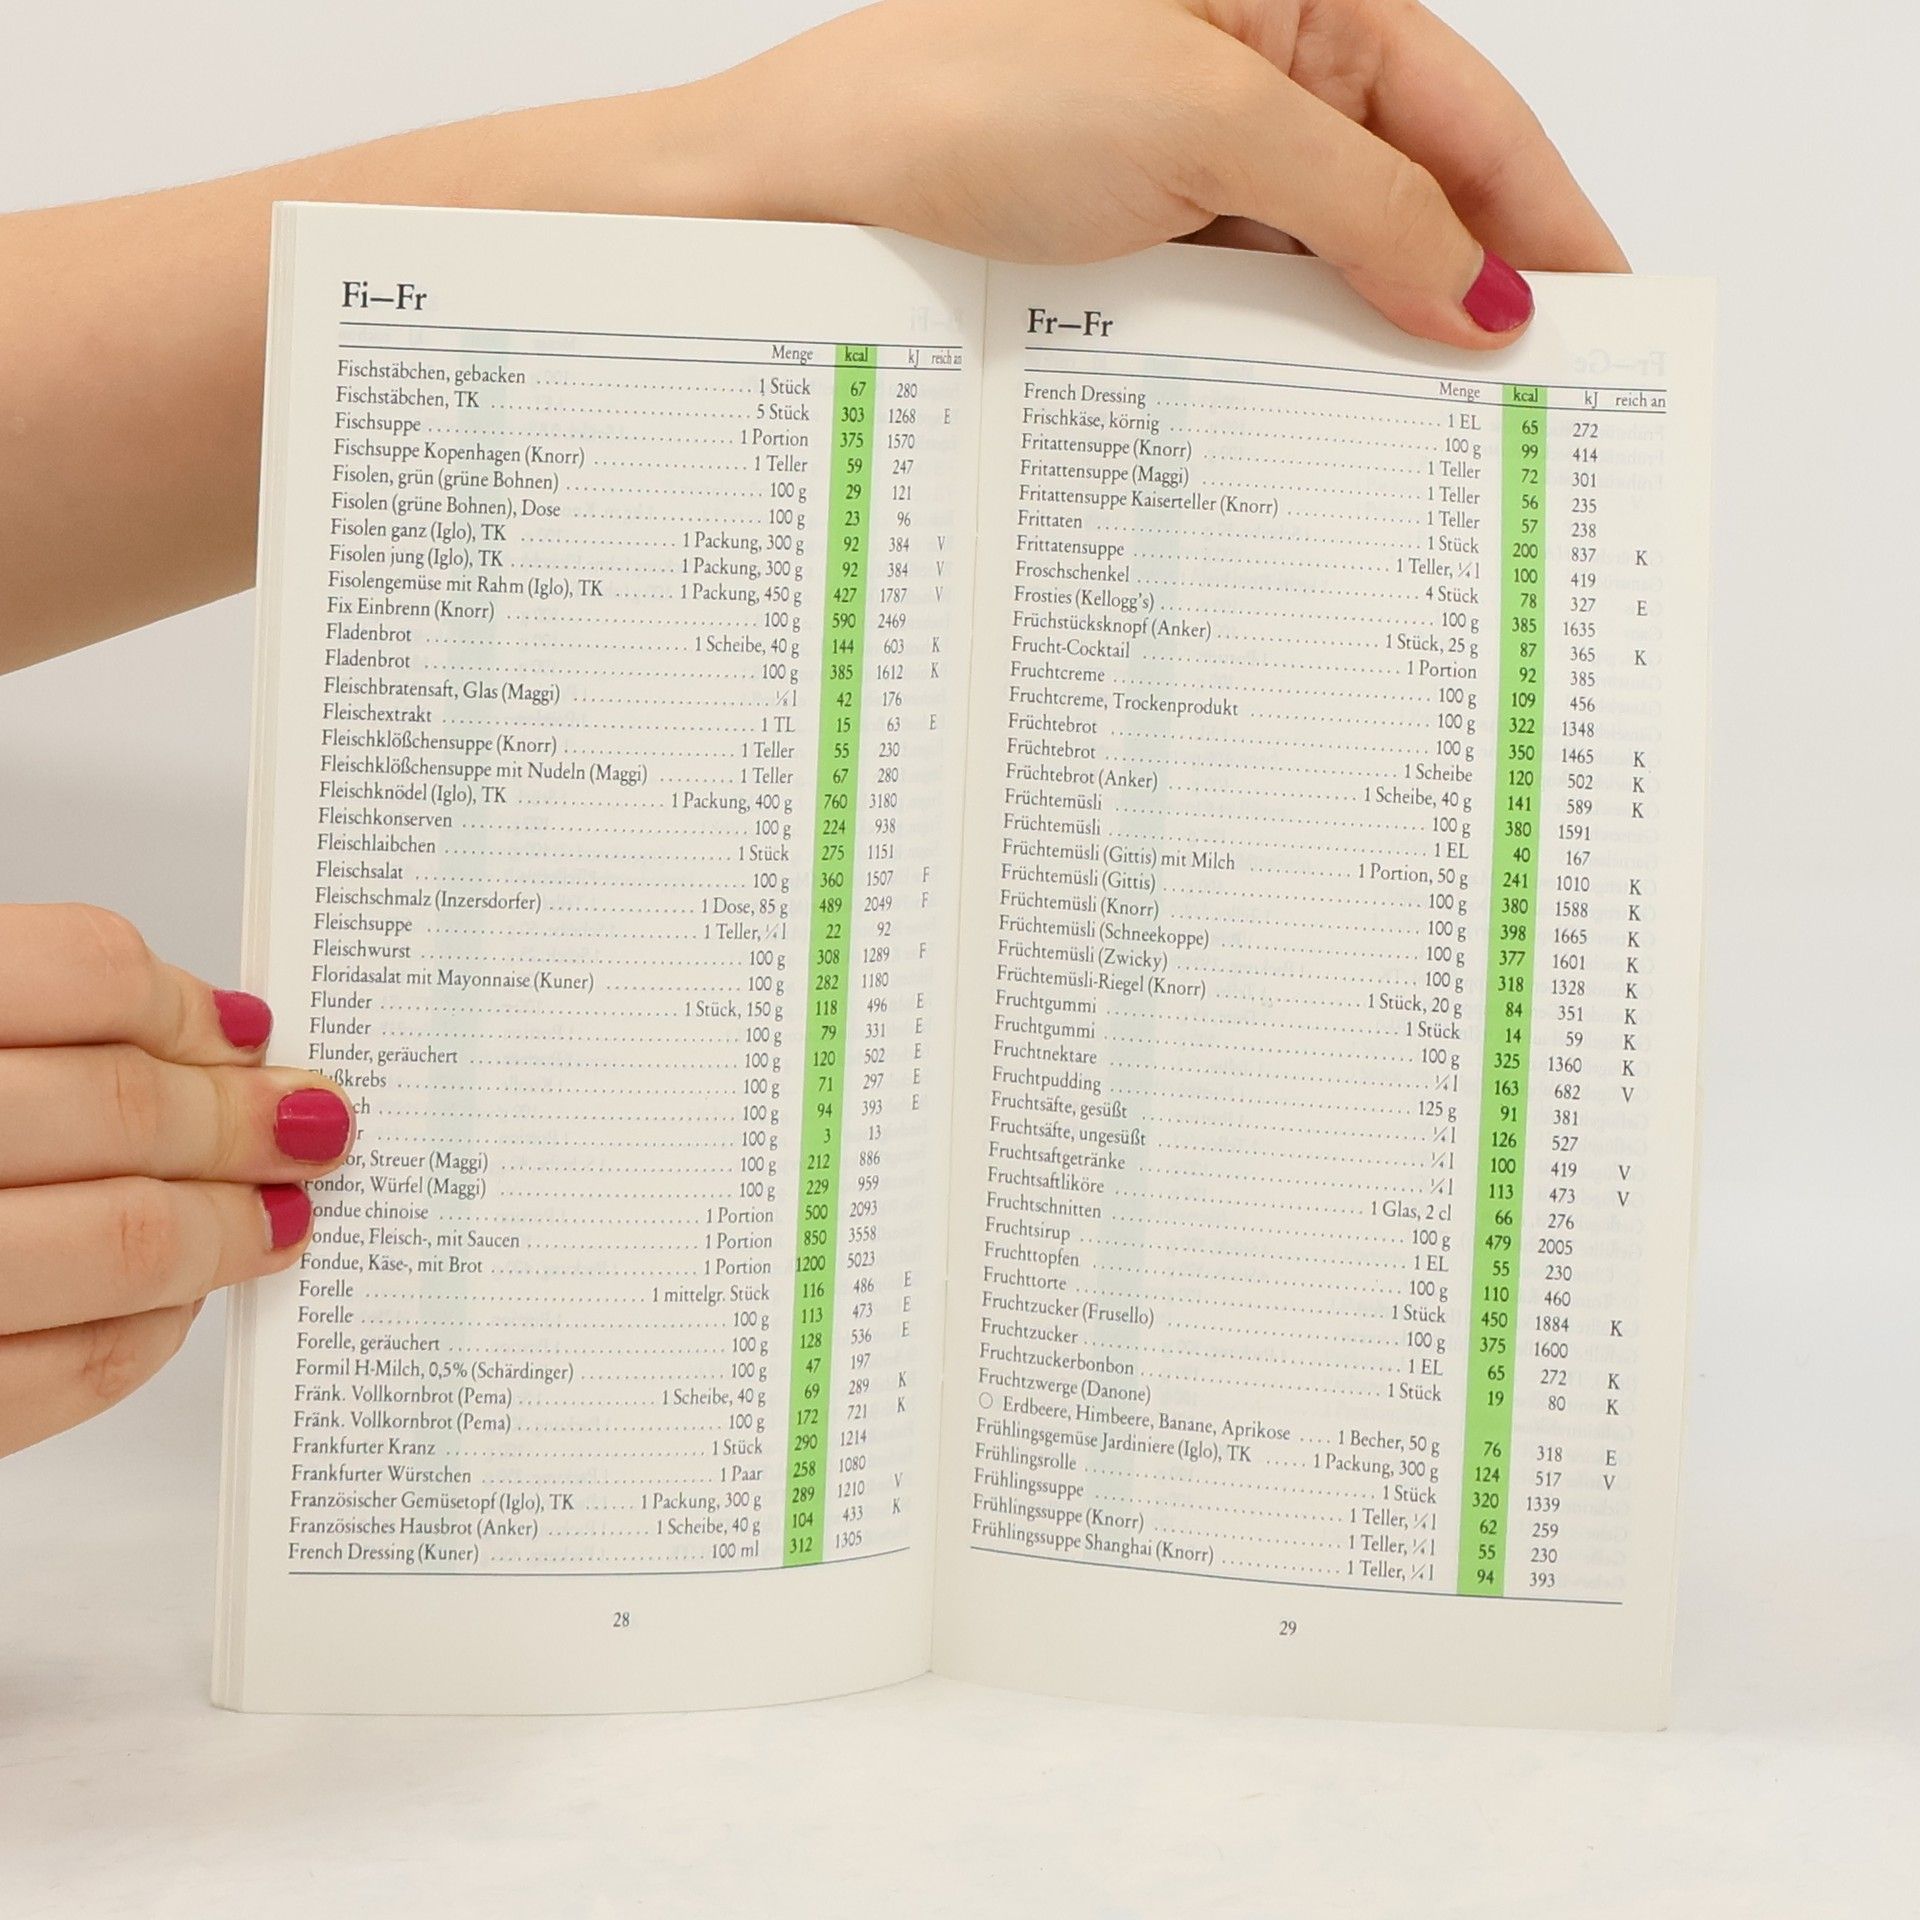 Fi—Fr
Menge kcal kJ reich an
Fischstäbchen, gebacken 1 Stück 67 280
Fischstäbchen, TK 5 Stück 303 1268 E
Fischsuppe 1 Portion 375 1570
Fischsuppe Kopenhagen (Knorr) 1 Teller 59 247
Fisolen, grün (grüne Bohnen) 100 g 29 121
Fisolen (grüne Bohnen), Dose 100 g 23 96
Fisolen ganz (Iglo), TK 1 Packung, 300 g 92 384 V
Fisolen jung (Iglo), TK 1 Packung, 300 g 92 384 V
Fisolengemüse mit Rahm (Iglo), TK 1 Packung, 450 g 427 1787 V
Fix Einbrenn (Knorr) 100 g 590 2469
Fladenbrot 1 Scheibe, 40 g 144 603 K
Fladenbrot 100 g 385 1612 K
Fleischbratensaft, Glas (Maggi) ⅛ l 42 176
Fleischextrakt 1 TL 15 63 E
Fleischklößchensuppe (Knorr) 1 Teller 55 230
Fleischklößchensuppe mit Nudeln (Maggi) 1 Teller 67 280
Fleischknödel (Iglo), TK 1 Packung, 400 g 760 3180
Fleischkonserven 100 g 224 938
Fleischlaibchen 1 Stück 275 1151
Fleischsalat 100 g 360 1507 F
Fleischschmalz (Inzersdorfer) 1 Dose, 85 g 489 2049 F
Fleischsuppe 1 Teller, ¼ l 22 92
Fleischwurst 100 g 308 1289 F
Floridasalat mit Mayonnaise (Kuner) 100 g 282 1180
Flunder 1 Stück, 150 g 118 496 E
Flunder 100 g 79 331 E
Flunder, geräuchert 100 g 120 502 E
ßkrebs 100 g 71 297 E
ch 100 g 94 393 E
r 100 g 3 13
or, Streuer (Maggi) 100 g 212 886
Fondor, Würfel (Maggi) 100 g 229 959
ondue chinoise 1 Portion 500 2093
ondue, Fleisch-, mit Saucen 1 Portion 850 3558
Fondue, Käse-, mit Brot 1 Portion 1200 5023
Forelle 1 mittelgr. Stück 116 486 E
Forelle 100 g 113 473 E
Forelle, geräuchert 100 g 128 536 E
Formil H-Milch, 0,5% (Schärdinger) 100 g 47 197
Fränk. Vollkornbrot (Pema) 1 Scheibe, 40 g 69 289 K
Fränk. Vollkornbrot (Pema) 100 g 172 721 K
Frankfurter Kranz 1 Stück 290 1214
Frankfurter Würstchen 1 Paar 258 1080
Französischer Gemüsetopf (Iglo), TK 1 Packung, 300 g 289 1210 V
Französisches Hausbrot (Anker) 1 Scheibe, 40 g 104 433 K
French Dressing (Kuner) 100 ml 312 1305
28
Fr—Fr
Menge kcal kJ reich an
French Dressing 1 EL 65 272
Frischkäse, körnig 100 g 99 414
Fritattensuppe (Knorr) 1 Teller 72 301
Fritattensuppe (Maggi) 1 Teller 56 235
Fritattensuppe Kaiserteller (Knorr) 1 Teller 57 238
Frittaten 1 Stück 200 837 K
Frittatensuppe 1 Teller, ¼ l 100 419
Froschschenkel 4 Stück 78 327 E
Frosties (Kellogg's) 100 g 385 1635
Früchstücksknopf (Anker) 1 Stück, 25 g 87 365 K
Frucht-Cocktail 1 Portion 92 385
Fruchtcreme 100 g 109 456
Fruchtcreme, Trockenprodukt 100 g 322 1348
Früchtebrot 100 g 350 1465 K
Früchtebrot 1 Scheibe 120 502 K
Früchtebrot (Anker) 1 Scheibe, 40 g 141 589 K
Früchtemüsli 100 g 380 1591
Früchtemüsli 1 EL 40 167
Früchtemüsli (Gittis) mit Milch 1 Portion, 50 g 241 1010 K
Früchtemüsli (Gittis) 100 g 380 1588 K
Früchtemüsli (Knorr) 100 g 398 1665 K
Früchtemüsli (Schneekoppe) 100 g 377 1601 K
Früchtemüsli (Zwicky) 100 g 318 1328 K
Früchtemüsli-Riegel (Knorr) 1 Stück, 20 g 84 351 K
Fruchtgummi 1 Stück 14 59 K
Fruchtgummi 100 g 325 1360 K
Fruchtnektare ¼ l 163 682 V
Fruchtpudding 125 g 91 381
Fruchtsäfte, gesüßt ¼ l 126 527
Fruchtsäfte, ungesüßt ¼ l 100 419 V
Fruchtsaftgetränke ¼ l 113 473 V
Fruchtsaftliköre 1 Glas, 2 cl 66 276
Fruchtschnitten 100 g 479 2005
Fruchtsirup 1 EL 55 230
Fruchttopfen 100 g 110 460
Fruchttorte 1 Stück 450 1884 K
Fruchtzucker (Frusello) 100 g 375 1600
Fruchtzucker 1 EL 65 272 K
Fruchtzuckerbonbon 1 Stück 19 80 K
Fruchtzwerge (Danone)
○ Erdbeere, Himbeere, Banane, Aprikose 1 Becher, 50 g 76 318 E
Frühlingsgemüse Jardiniere (Iglo), TK 1 Packung, 300 g 124 517 V
Frühlingsrolle 1 Stück 320 1339
Frühlingssuppe 1 Teller, ¼ l 62 259
Frühlingssuppe (Knorr) 1 Teller, ¼ l 55 230
Frühlingssuppe Shanghai (Knorr) 1 Teller, ¼ l 94 393
29